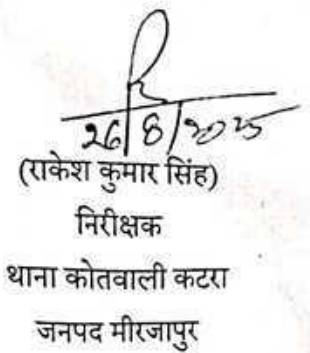 26/8/2025
(राकेश कुमार सिंह)
निरीक्षक
थाना कोतवाली कटरा
जनपद मीरजापुर